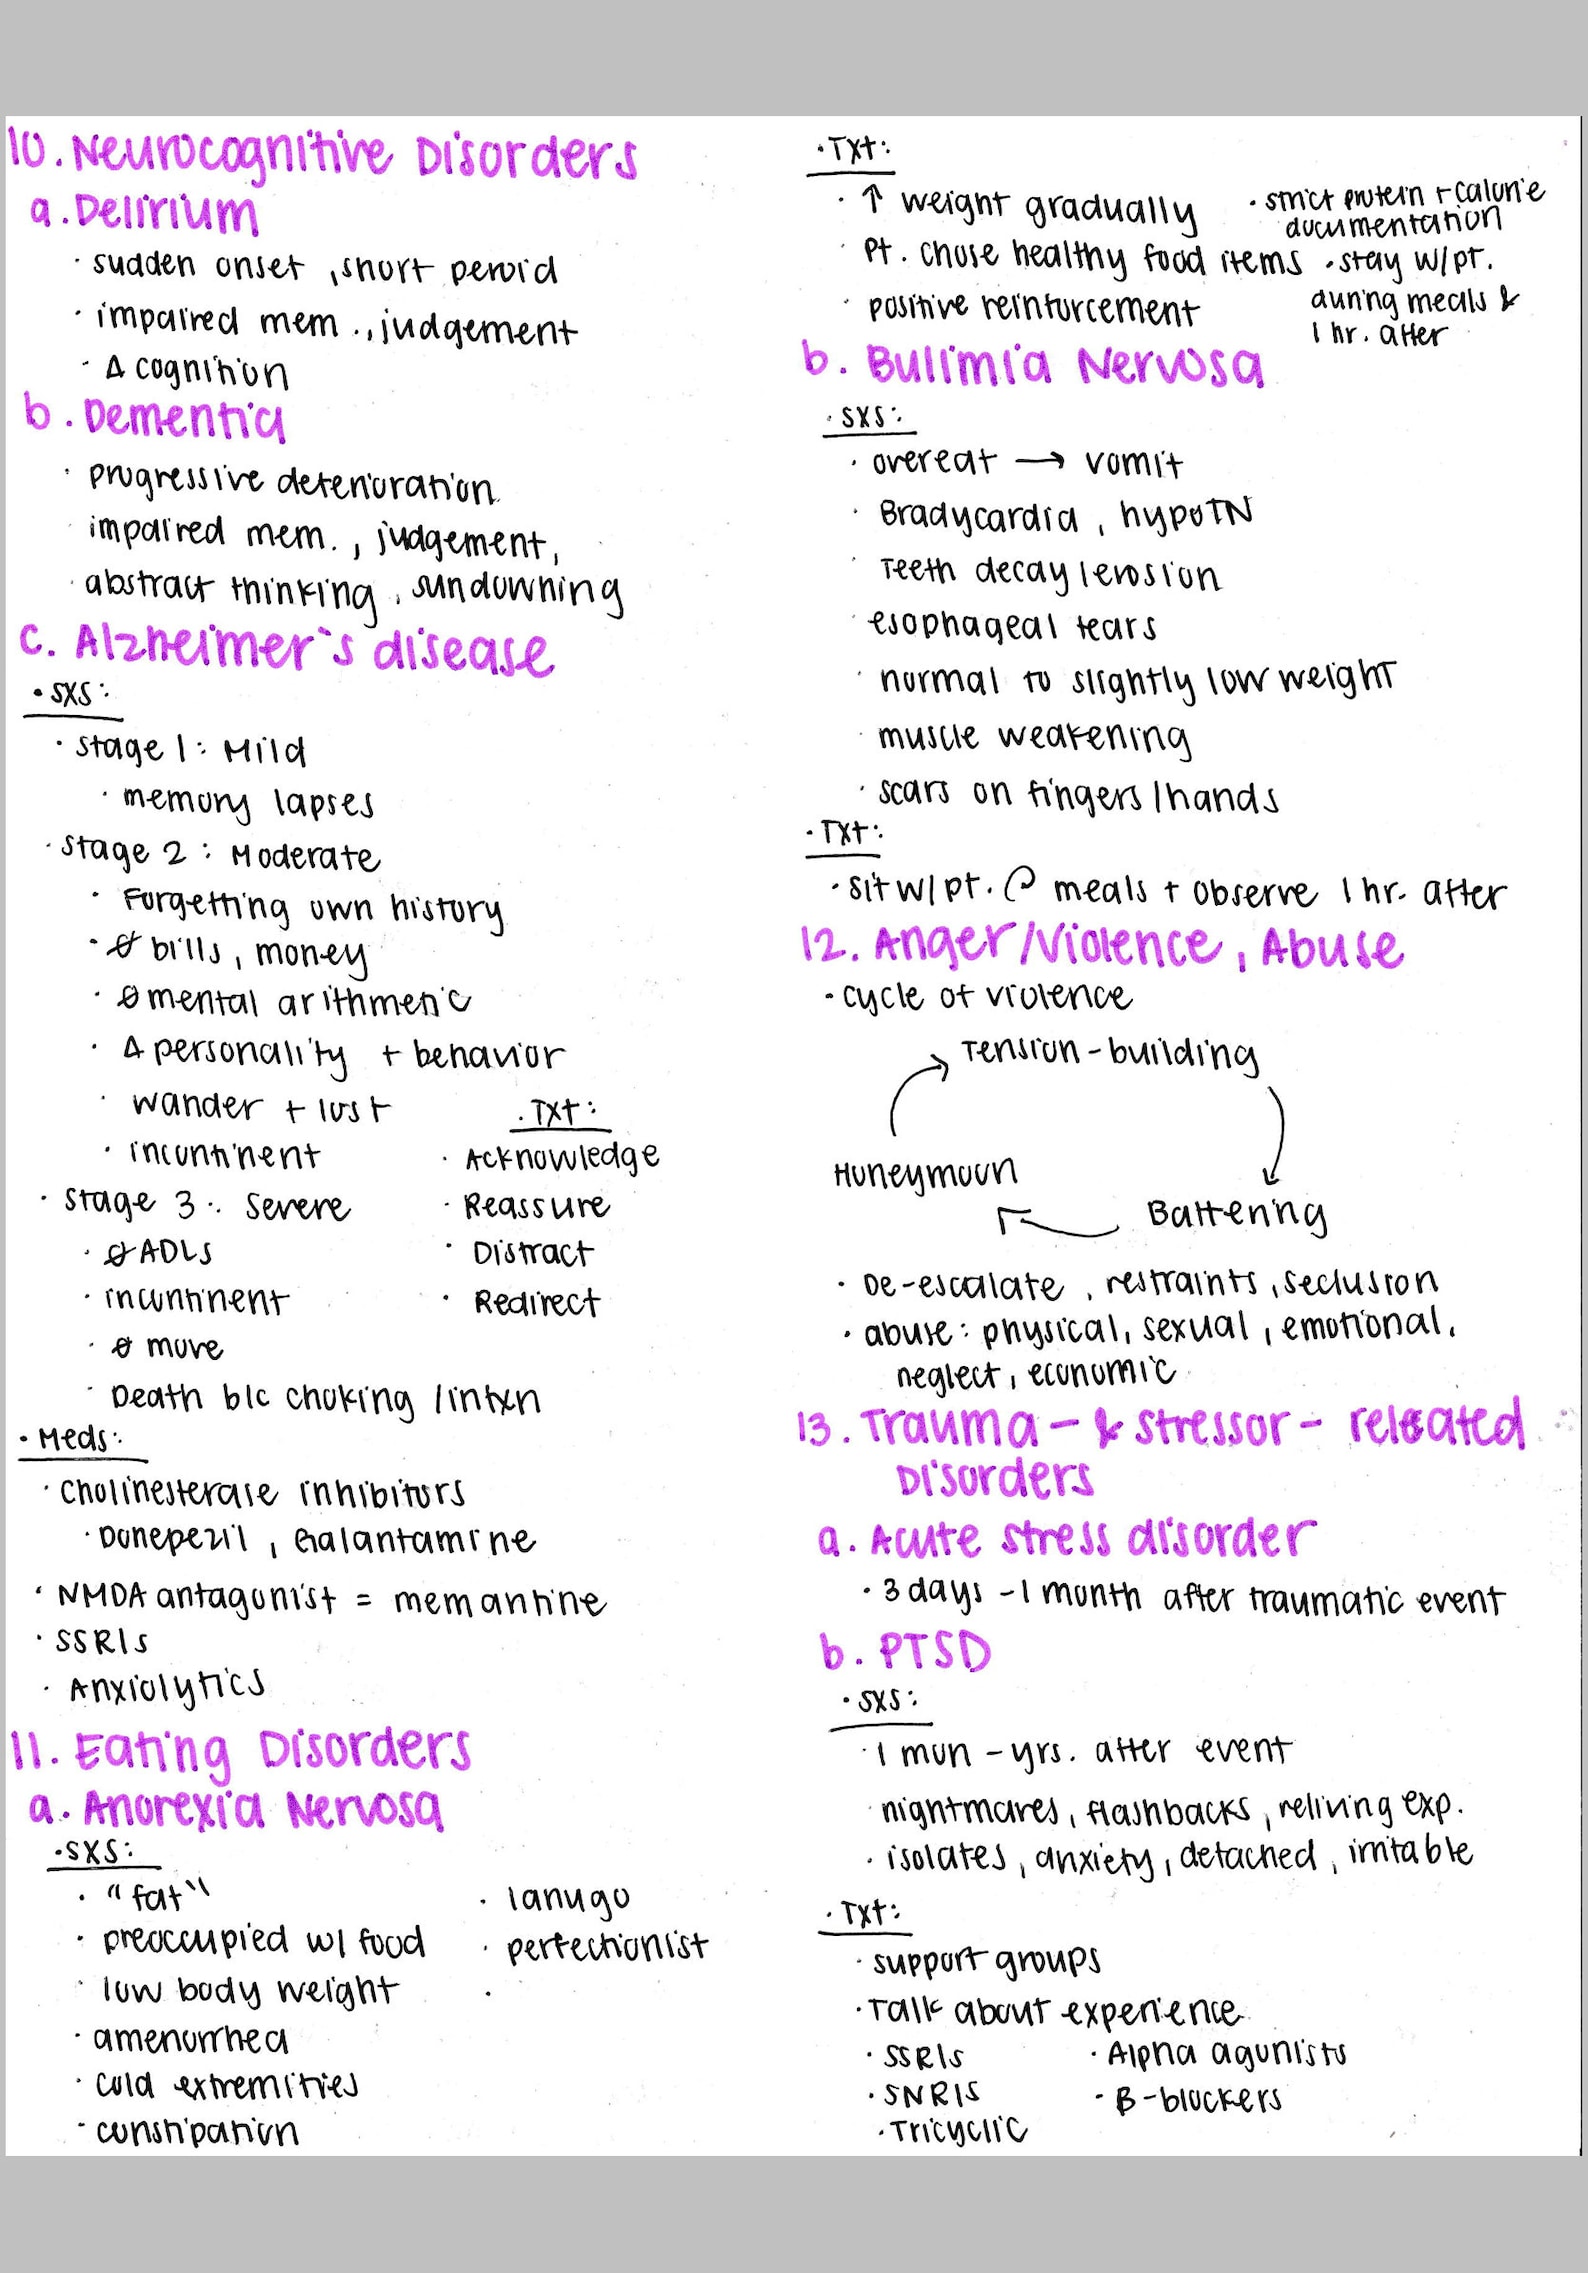 10. Neurocognitive Disorders
a. Delirium
· sudden onset, short peroid
· impaired mem., judgement
· Δ cognition
b. Dementia
· progressive deterioration
· impaired mem., judgement,
· abstract thinking, sundowning
c. Alzheimer's disease
· sxs:
· stage 1: Mild
· memory lapses
· stage 2: Moderate
· Forgetting own history
· Ø bills, money
· Ø mental arithmetic
· Δ personality + behavior
· wander + lost
· incontinent
· stage 3: severe
· Ø ADLs
· incontinent
· Ø move
· Death b/c choking/infxn
· Txt:
· Acknowledge
· Reassure
· Distract
· Redirect
· Meds:
· Cholinesterase inhibitors
· Donepezil, Galantamine
· NMDA antagonist = memantine
· SSRIs
· Anxiolytics
11. Eating Disorders
a. Anorexia Nervosa
· sxs:
· "fat"
· preoccupied w/ food
· low body weight
· amenorrhea
· cold extremities
· constipation
· lanugo
· perfectionist
·
· Txt:
· ↑ weight gradually
· Pt. chose healthy food items
· positive reinforcement
· strict protein + calorie
documentation
· stay w/pt.
during meals &
1 hr. after
b. Bulimia Nervosa
· sxs:
· overeat → vomit
· Bradycardia, hypoTN
· Teeth decay/erosion
· esophageal tears
· normal to slightly low weight
· muscle weakening
· scars on fingers/hands
· Txt:
· sit w/pt. @ meals + observe 1 hr. after
12. Anger/Violence, Abuse
· cycle of violence
Tension-building
Honeymoon
Battering
· De-escalate, restraints, seclusion
· abuse: physical, sexual, emotional,
neglect, economic
13. Trauma- & stressor- related
Disorders
a. Acute stress disorder
· 3 days - 1 month after traumatic event
b. PTSD
· sxs:
· 1 mon - yrs. after event
· nightmares, flashbacks, reliving exp.
· isolates, anxiety, detached, irritable
· Txt:
· support groups
· Talk about experience
· SSRIs
· SNRIs
· Tricyclic
· Alpha agonists
· B-blockers